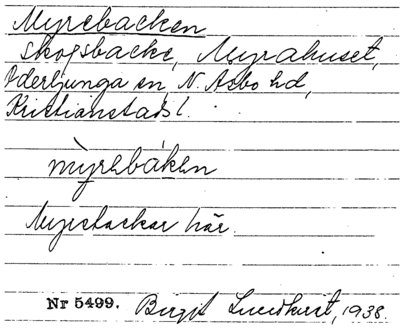 Myrebacken
skogsbacke, Myrahuset,
Oderljunga sn, N. Åsbo hd,
Kristianstads l.
myrebáken
Myrstackar här.
Nr 5499. Birgit Lundkvist, 1938.